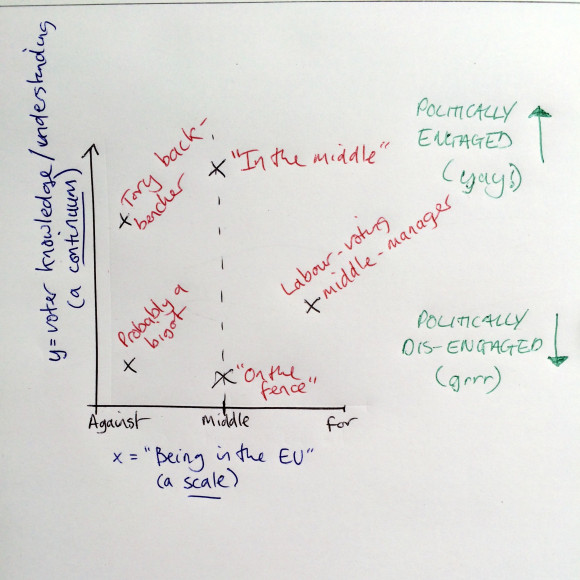 y=voter knowledge/understanding
(a continuum)
Tory back-
bencher
"In the middle"
POLITICALLY
ENGAGED
(yay!)
Labour-voting
middle-manager
Probably a
bigot
"On the
fence"
POLITICALLY
DIS-ENGAGED
(grrr)
Against
middle
For
x = "Being in the EU"
(a scale)